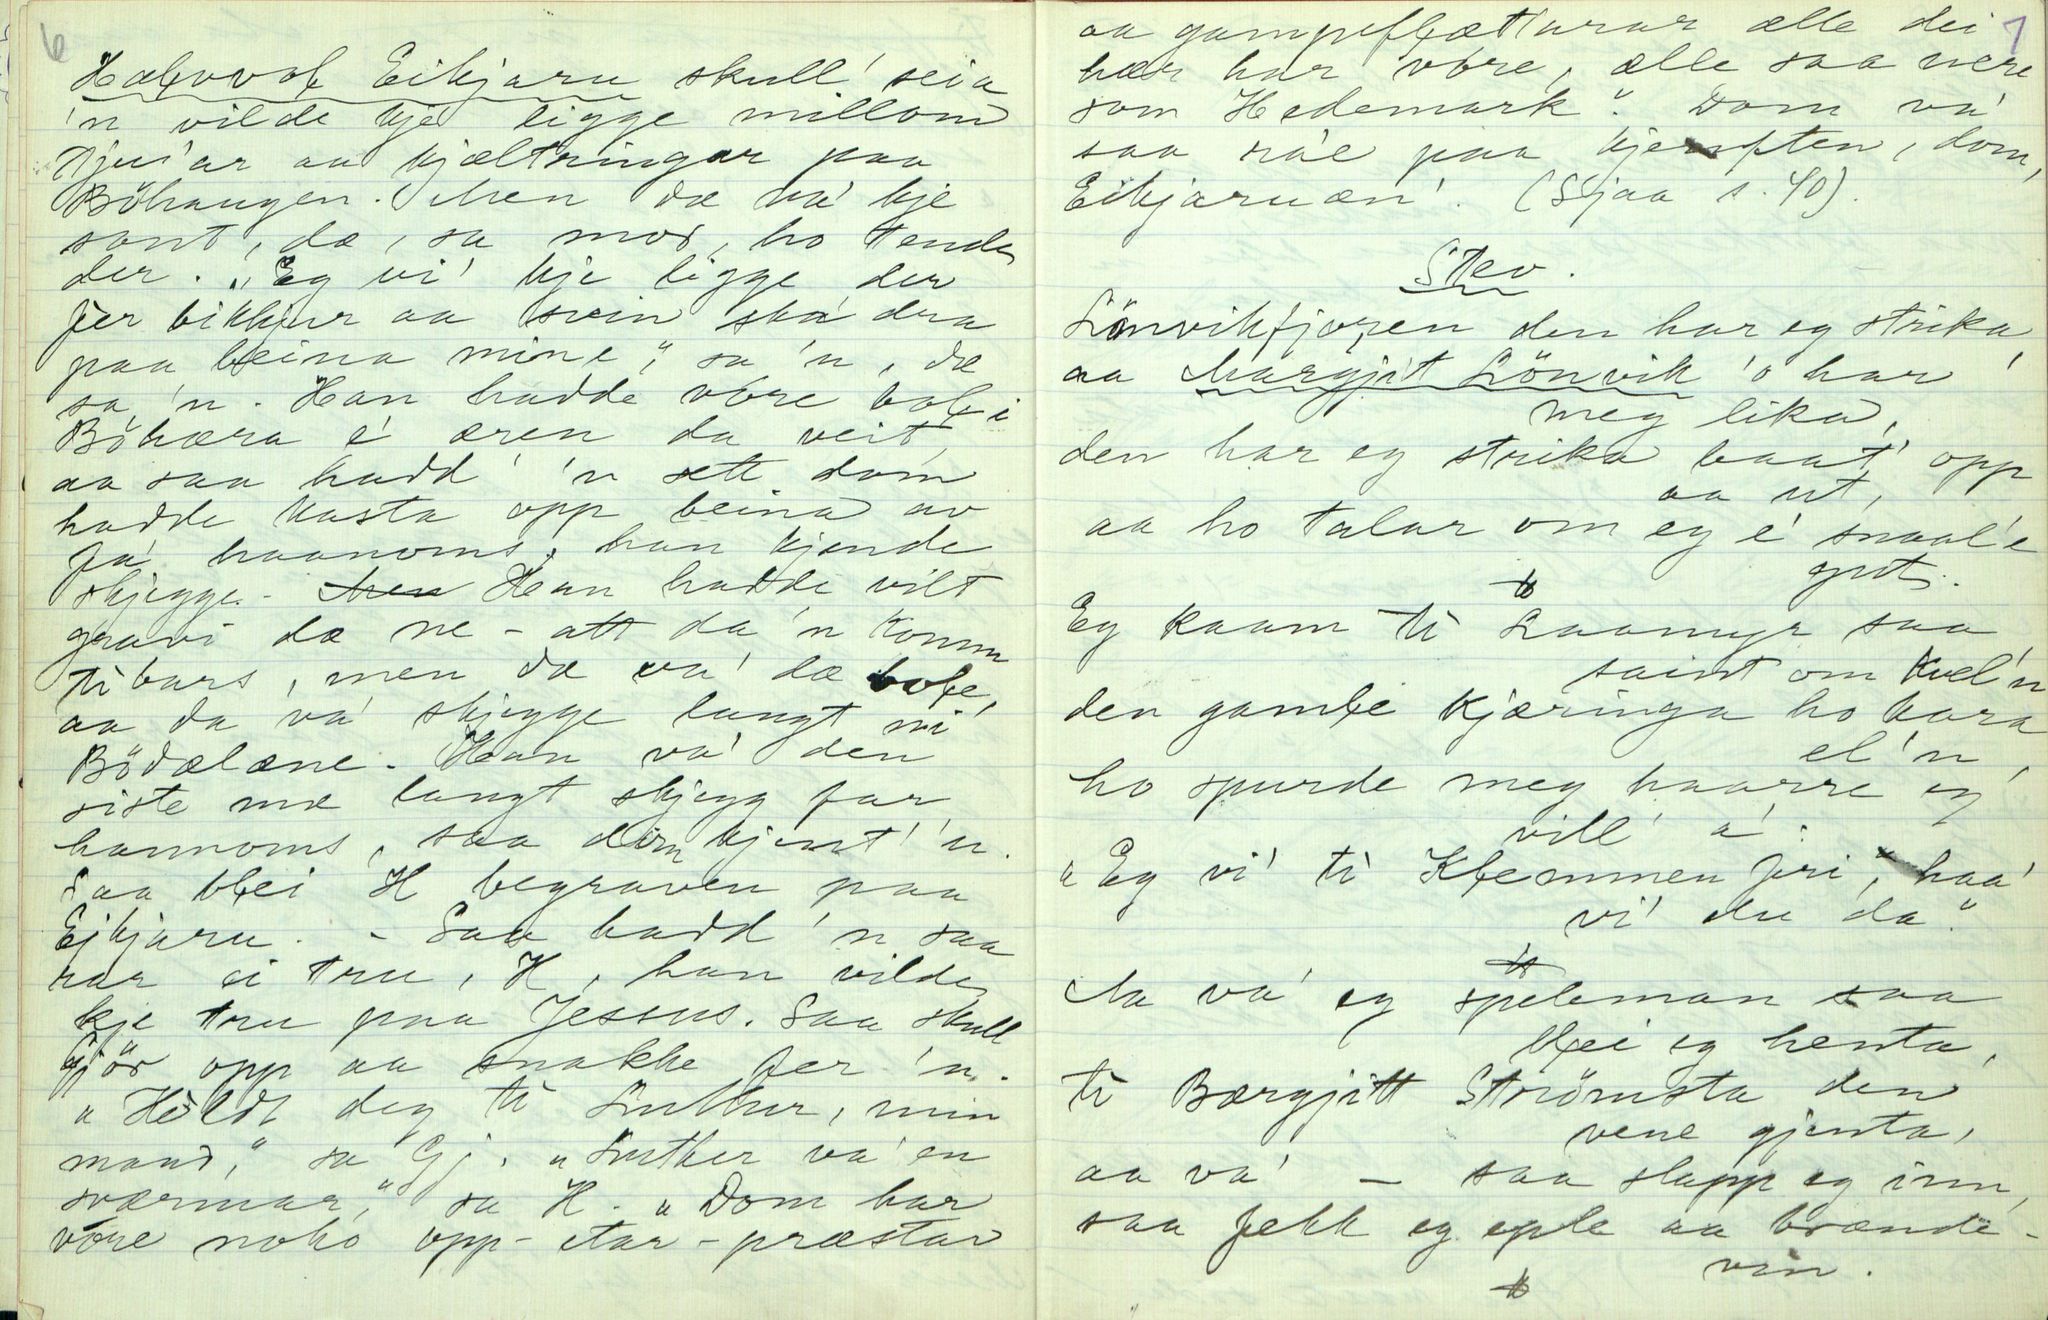 6
Hælvvol Eikjaru skull' seia
'n vilde kje ligge millom
Tjuvar aa kjæltringar paa
Böhaugen. Men dæ va' kje
sant, dæ, sa mor, ho tende
der. "Eg vi' kje ligge der
fer bikkjur aa svin ska dra
paa beina mine", sa 'n, dæ
sa 'n. Han hadde vore bole i
Böhæra e' æren da veit,
aa saa hadd' 'n sett dom
hadde kasta opp beina av
fa' haanoms, han kjende
skjegge. Men Han hadde vilt
gravi dæ ne - att da 'n komm
tibars, men dæ va' dæ bole,
aa da va' skjegge langt ni
Bödælæne. Han va' den
siste mæ langt skjegg far
hannoms, saa dom kjent' 'n.
Saa blei H begraven paa
Eikjaru. - Saa hadd 'n saa
rar ei tru, H, han vilde
kje tru paa Jessus. Saa skull
Gjör opp aa snakke fer 'n.
"Hold deg ti Luther, min
mand," sa Gj. "Luther va' en
sværmar," sa H. "Dom har
vore noko opp-etar-præstar
7
aa gampeflætturar ælle dei
hær har vore, ælle saa nere
som Hedemark". Dom va'
saa räe paa kjeften, dom,
Eikjaruæn'. (Sjaa s. 40).
Stev.
Lönvikfjoren den har eg strika
aa Margjit Lönvik 'o har
meg lika,
den har eg strika baat' opp
aa ut,
aa ho talar om eg e' snaal'e
gut.
Eg kaam ti Laamyr saa
saint om kvel'n
den gamle kjæringa ho kara
el'n,
ho spurde meg haarre eg
vill' a'.
"Eg vi' ti Klemmen fri", haa'
vi' du da".
Aa va' eg speleman saa
blei eg henta,
ti Bærgjitt Strömsta den
vene gjenta,
aa va' — saa slapp eg inn,
saa fekk eg eple aa brænde-
vin.